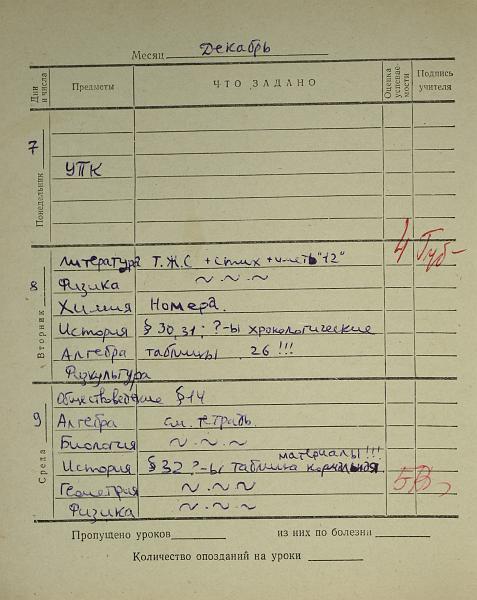 Месяц Декабрь
Дни и числа Предметы ЧТО ЗАДАНО Оценка успеваемости Подпись учителя
Понедельник 7
УПК
Вторник 8
Литература Т.Ж.С + стих + читать "12" 4
Физика ~ . ~ . ~
Химия Номера.
История § 30,31; ?-ы хронологические
Алгебра таблицы 26 !!!
Физкультура
Среда 9
Обществоведение § 14
Алгебра см. тетрадь
Биология ~ . ~ . ~
материалы!!!
История § 32 ?-ы таблица 5
Геометрия ~ . ~ . ~
Физика ~ . ~ . ~
Пропущено уроков из них по болезни
Количество опозданий на уроки